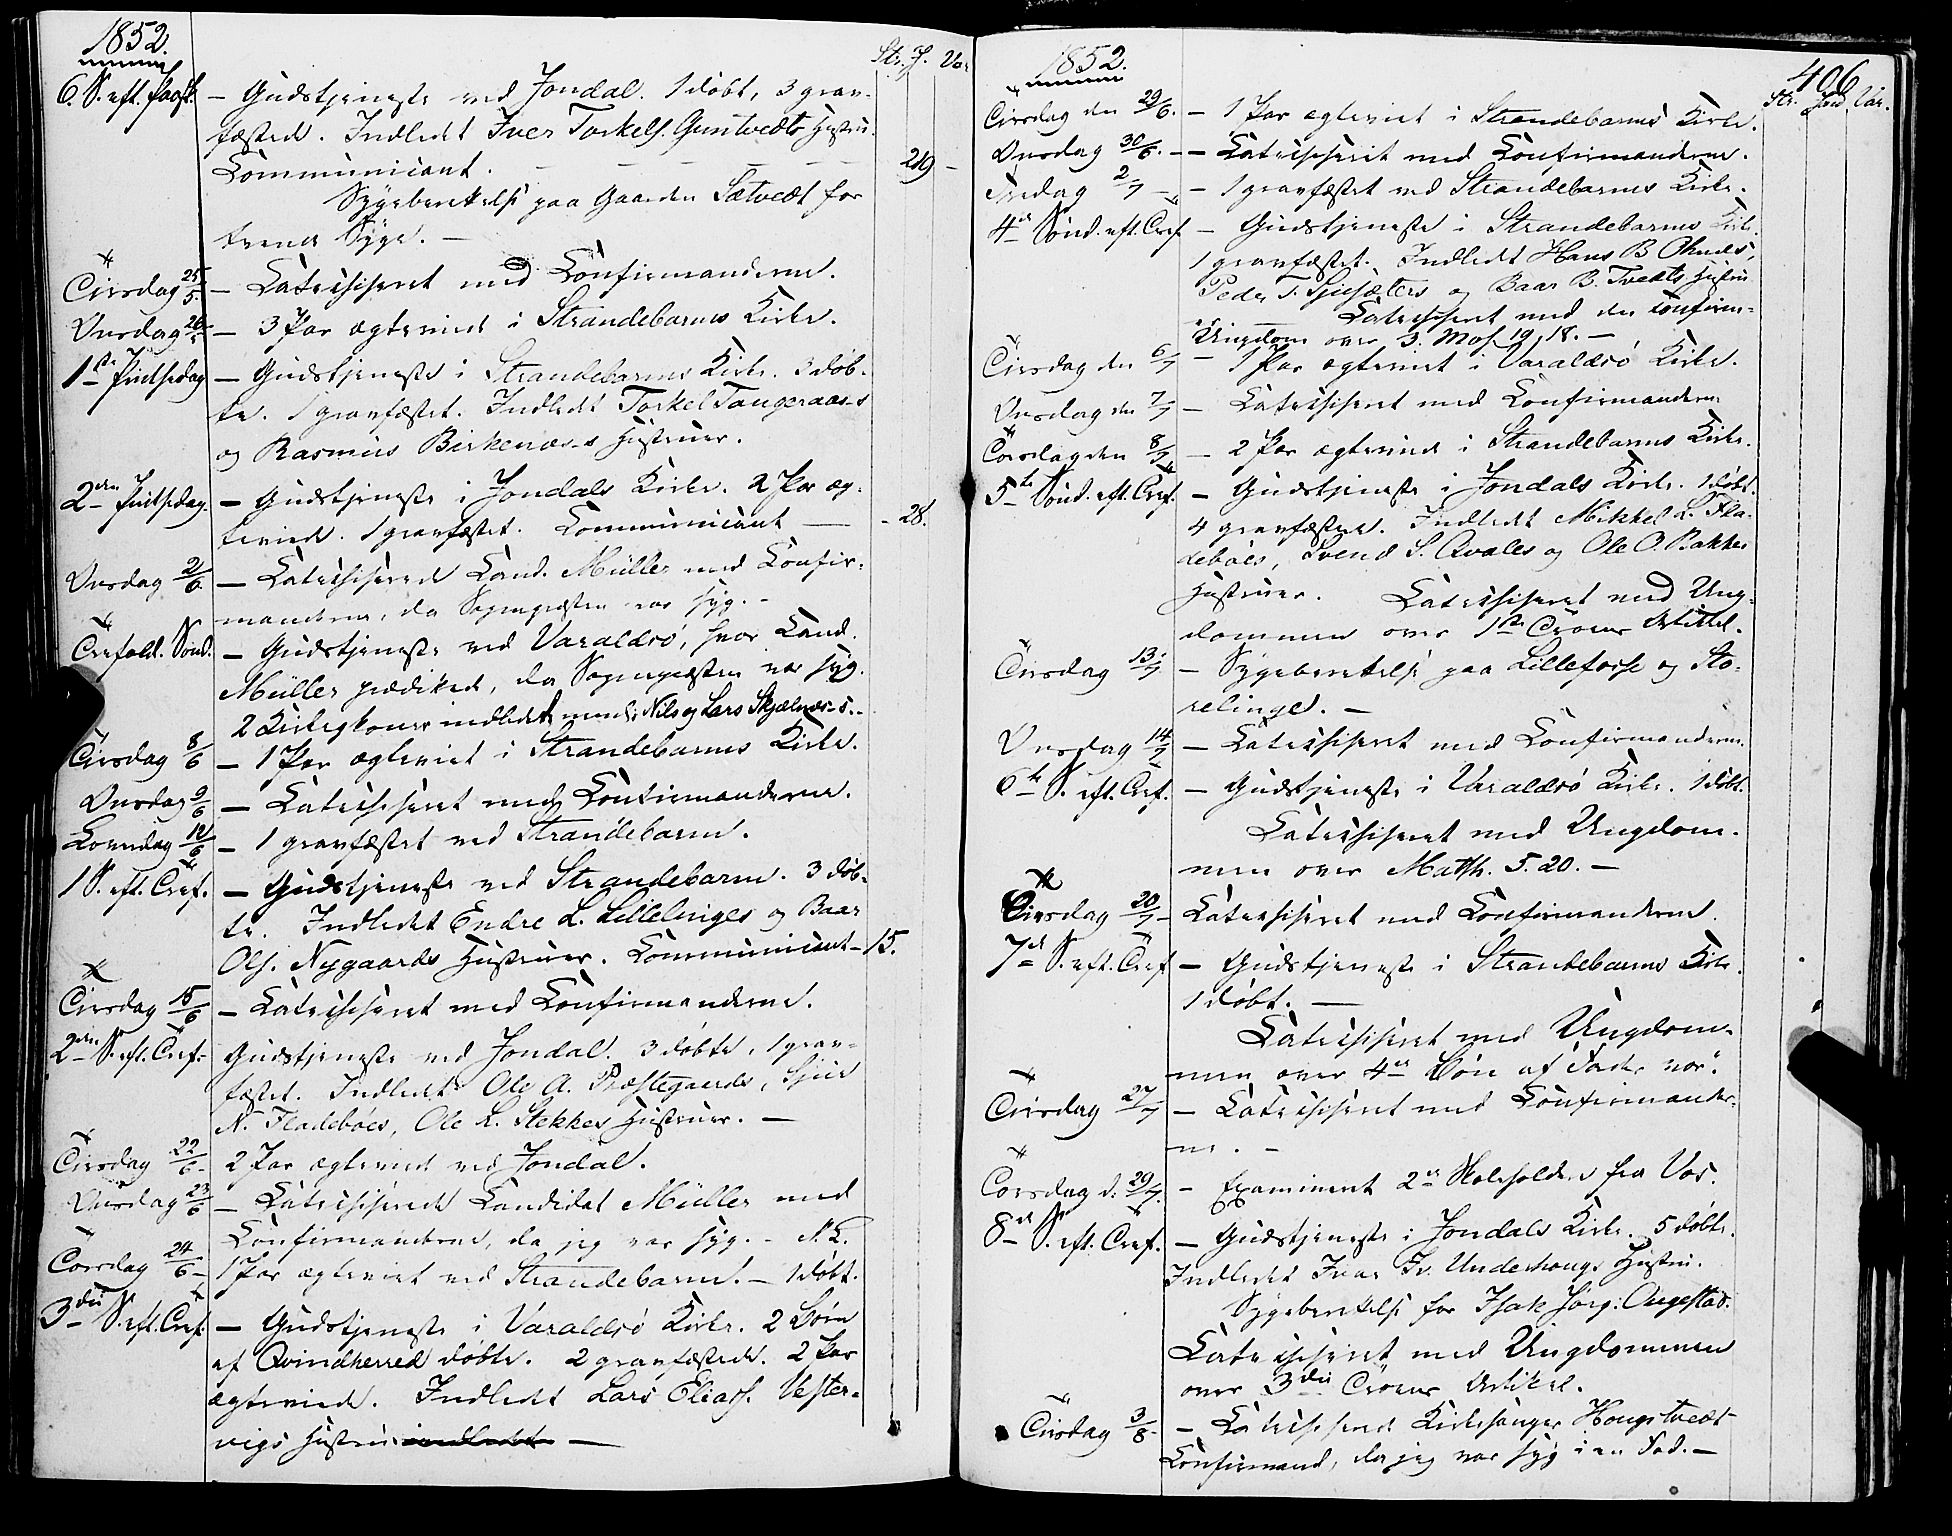 1852.
Str. J. Var
6. S. eft. Paask. — Gudstjeneste ved Jondal. 1 døbt, 3 grav-
fæstede. Indledt Iver Torkels. Guntvedts Hustru.
Communicant. — 29 —
Sygeberetelse paa Gaarden Sætvedt for
trende Syge. —
Tirsdag 25/5. — Catechiseret med Confirmanderne.
Onsdag 26/5 — 3 Par ægteviet i Strandebarms Kirke.
1ste Pintsedag — Gudstjeneste i Strandebarms Kirke. 3 døb-
te. 1 gravfæstet. Indledt Torkel Tangeraas-s
og Rasmus Birkenæs-s Hustruer.
2den Pintsedag. — Gudstjeneste i Jondals Kirke. 2 Par æg-
teviede. 1 gravfæstet. Communicant — - 28.
Onsdag 2/6 — Catechiserede Cand. Müller med Confir-
manderne, da Sognepræsten var syg. -
Trefold. Sønd. — Gudstjeneste ved Varaldsö, hvor Cand.
Müller prædikede, da Sognepræsten var syg.
2 Kirkegkoner indledt, nemlig Nils og Lars Skjelnæs-s.-
Tirsdag 8/6 — 1 Par ægteviet i Strandebarms Kirke.
Onsdag 9/6 — Catechiseret med Confirmanderne.
Løverdag 12/6 — 1 gravfæstet ved Strandebarm.
1 S. eft. Tref. — Gudstjeneste ved Strandebarm. 3 døb-
te. Indledt Endre L. Lillelinges og Baar
Ols. Nygaards Hustruer. Communicant — 15.
Tirsdag 15/6 — Catechiseret med Confirmanderne.
2den S. eft. Tref. Gudstjeneste ved Jondal. 3 døbte, 1 grav-
fæstet. Indledt Ole A. Præstegaards, Sjur
N. Fladebøes, Ole L. Stekkes Hustruer. —
Tirsdag 22/6. 2 Par ægteviet ved Jondal.
Onsdag 23/6 — Catechiserede Candidat Müller med
Confirmanderne, da jeg var syg. -
Torsdag 24/6 — 1 Par ægteviet ved Strandebarm. — 1 døbt.
3die S. eft. Tref. — Gudstjeneste i Varaldsö Kirke. 2 Børn
af Qvindherred døbte. 2 gravfæstede. 2 Par
ægteviede. Indledt Lars Eliass. Vester-
vigs Hustru indledt —
1852.
406
Str. Jond Var.
Tirsdag den 29/6. — 1 Par ægteviet i Strandebarms Kirke.
Onsdag 30/6. — Catechiseret med Confirmanderne.
Fredag 2/7 — 1 gravfæstet ved Strandebarms Kirke.
4de Sønd. eft. Tref. — Gudstjeneste i Strandebarms Kirke.
1 gravfæstet. Indledt Hans B. Omdes,
Peder T. Sjusæters og Baar B. Tvedts Hustru
er — Catechiseret med den confirm-
Ungdom over 3. Mos. 19, 18. —
Tirsdag den 6/7 — 1 Par ægteviet i Varaldsö Kirke.
Onsdag den 7/7 — Catechiseret med Confirmanderne
Torsdag den 8/7 — 2 Par ægteviet i Strandebarms Kirke.
5te Sønd. eft. Tref. — Gudstjeneste i Jondals Kirke. 1 døbt.
4 gravfæstede. Indledt Mikkel L. Fla-
debøes, Svend S. Qvales og Ole O. Bakkes
Hustruer. Catechiseret med Ung-
dommen over 1ste Troens Artikel.
Tirsdag 13/7 — Sygeberetelse paa Lillefosse og Sto-
relinge. —
Onsdag 14/7 — Catechiseret med Confirmanderne.
6te S. eft. Tref. — Gudstjeneste i Varaldsö Kirke. 1 døbt.
Catechiseret med Ungdom-
men over Matth. 5. 20. —
Tirsdag 20/7 — Catechiseret med Confirmanderne.
7de S. eft. Tref — Gudstjeneste i Strandebarms Kirke.
1 døbt. —
Catechiseret med Ungdom-
men over 4de Bøn af Fader vor.
Tirsdag 27/7 — Catechiseret med Confirmander-
ne. -
Torsdag d. 29/7. — Examineret 2de Skoleholdere fra Vos.
8de S. eft. Tref. — Gudstjeneste i Jondals Kirke. 5 døbte.
Indledt Ivar Iv. Underhougs Hustru.
Sygeberetelse for Isak Jørg: Augestad.
Catechiseret med Ungdommen
over 3die Troens Artikel.
Tirsdag 3/8 — Catechiserede Kirkesanger Hougstvedt
Confirmand, da jeg var syg i en Fod. —